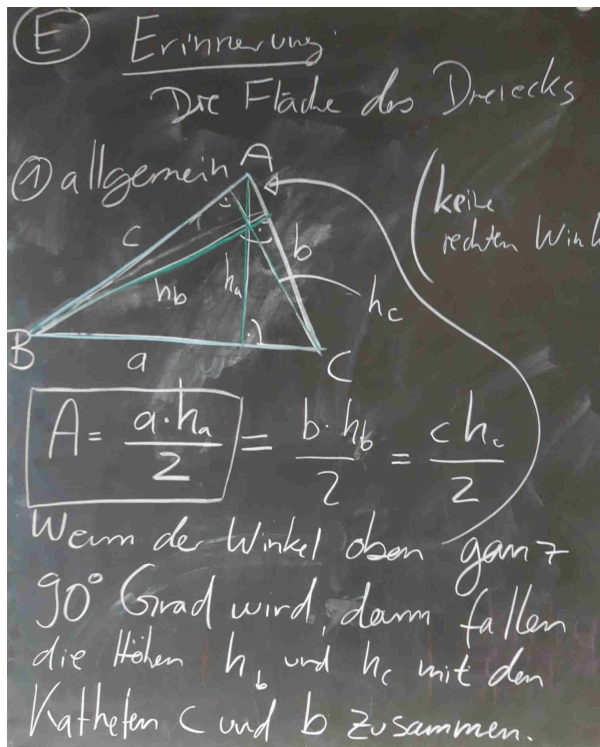 E Erinnerung:
Die Fläche des Dreiecks
1 allgemein
A
(keine
rechten Wink
c
b
hb
ha
hc
B
a
C
A = a·ha/2 = b·hb/2 = c hc/2
Wenn der Winkel oben ganz
90° Grad wird, dann fallen
die Höhen hb und hc mit den
Katheten c und b zusammen.